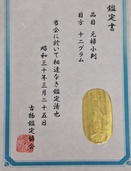 鑑定書
品目 元禄小判
目方 十二グラム
当会に於いて相違なき鑑定済也
昭和三十年三月二十五日
古銭鑑定協会